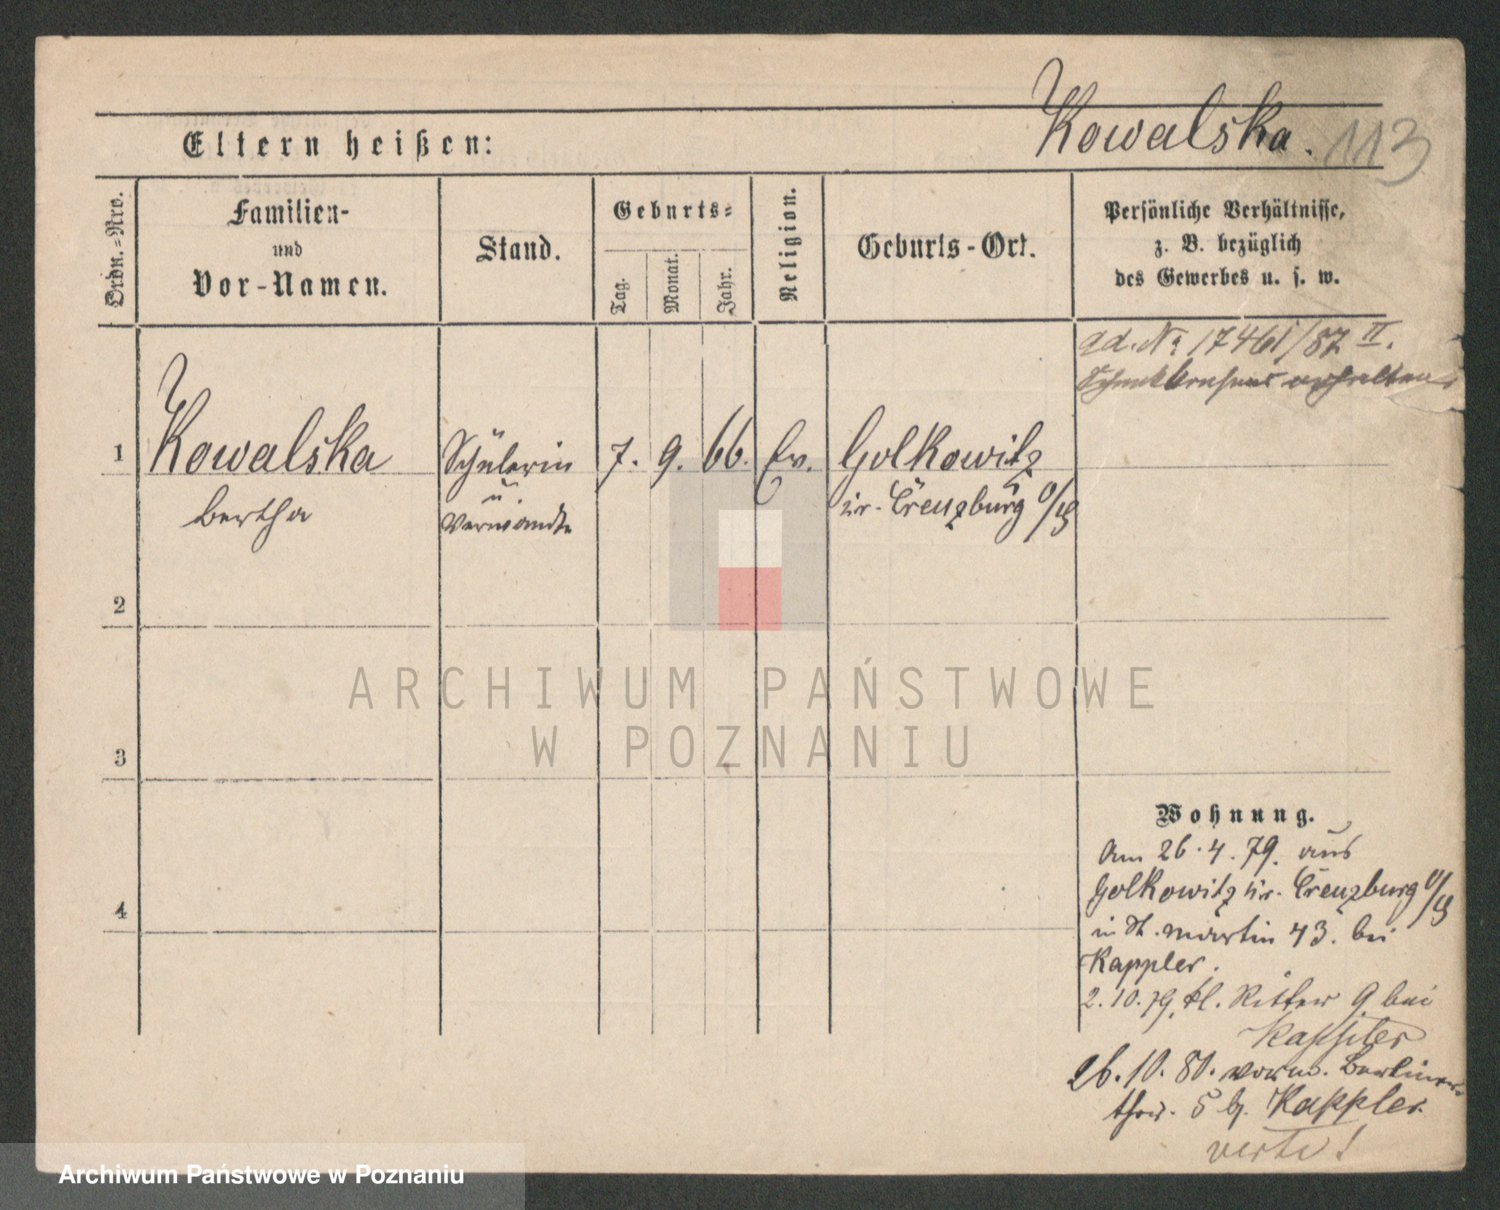 Kowalska. 113
Eltern heißen:
Ordn.-Nro.
Familien-
und
Vor-Namen.
Stand.
Geburts-
Tag.
Monat.
Jahr.
Religion.
Geburts-Ort.
Persönliche Verhältnisse,
z. B. bezüglich
des Gewerbes u. s. w.
ad. No 17461/87 II.
1
Kowalska
Bertha
Schülerin
u.
Verwandte
7. 9. 66. Ev.
Golkowitz
Kr. Creuzburg O/S
2
3
4
Wohnung.
Am 26.4.79. aus
Golkowitz Kr. Creuzburg O/S
in St. Martin 43. bei
Kappler.
2.10.79. kl. Ritter 9 bei
Kappler
26.10.80. vorm. Berliner
thor. 5 b. Kappler
verte!
ARCHIWUM PAŃSTWOWE
W POZNANIU
Archiwum Państwowe w Poznaniu